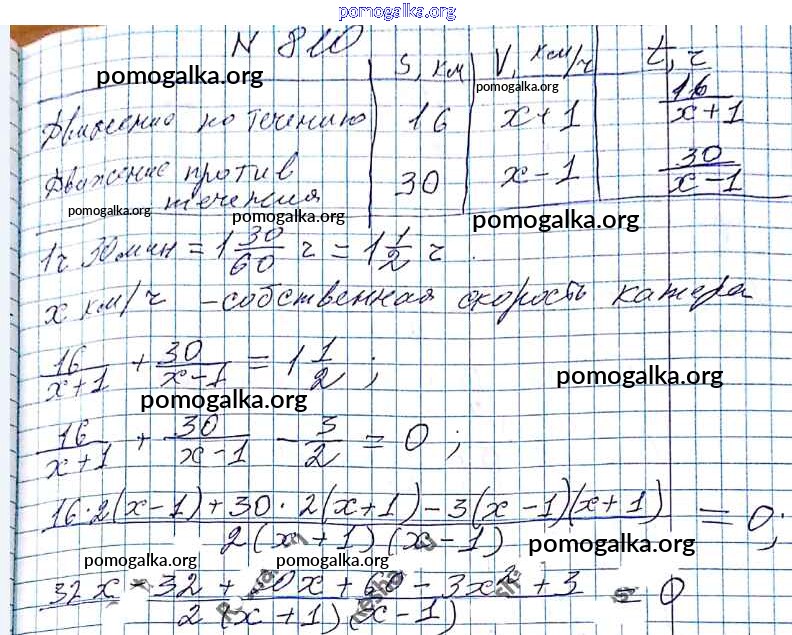 pomogalka.org
N 810
S, км V, км/ч t, ч
pomogalka.org pomogalka.org
Движение по течению 16 x+1 16/(x+1)
Движение против течения 30 x-1 30/(x-1)
pomogalka.org pomogalka.org pomogalka.org
1ч 30мин = 1 30/60 ч = 1 1/2 ч.
x км/ч - собственная скорость катера
16/(x+1) + 30/(x-1) = 1 1/2 ;
pomogalka.org pomogalka.org
16/(x+1) + 30/(x-1) - 3/2 = 0 ;
(16·2(x-1)+30·2(x+1)-3(x-1)(x+1))/(2(x+1)(x-1)) = 0;
pomogalka.org pomogalka.org
(32x-32+60x+60-3x²+3)/(2(x+1)(x-1)) = 0